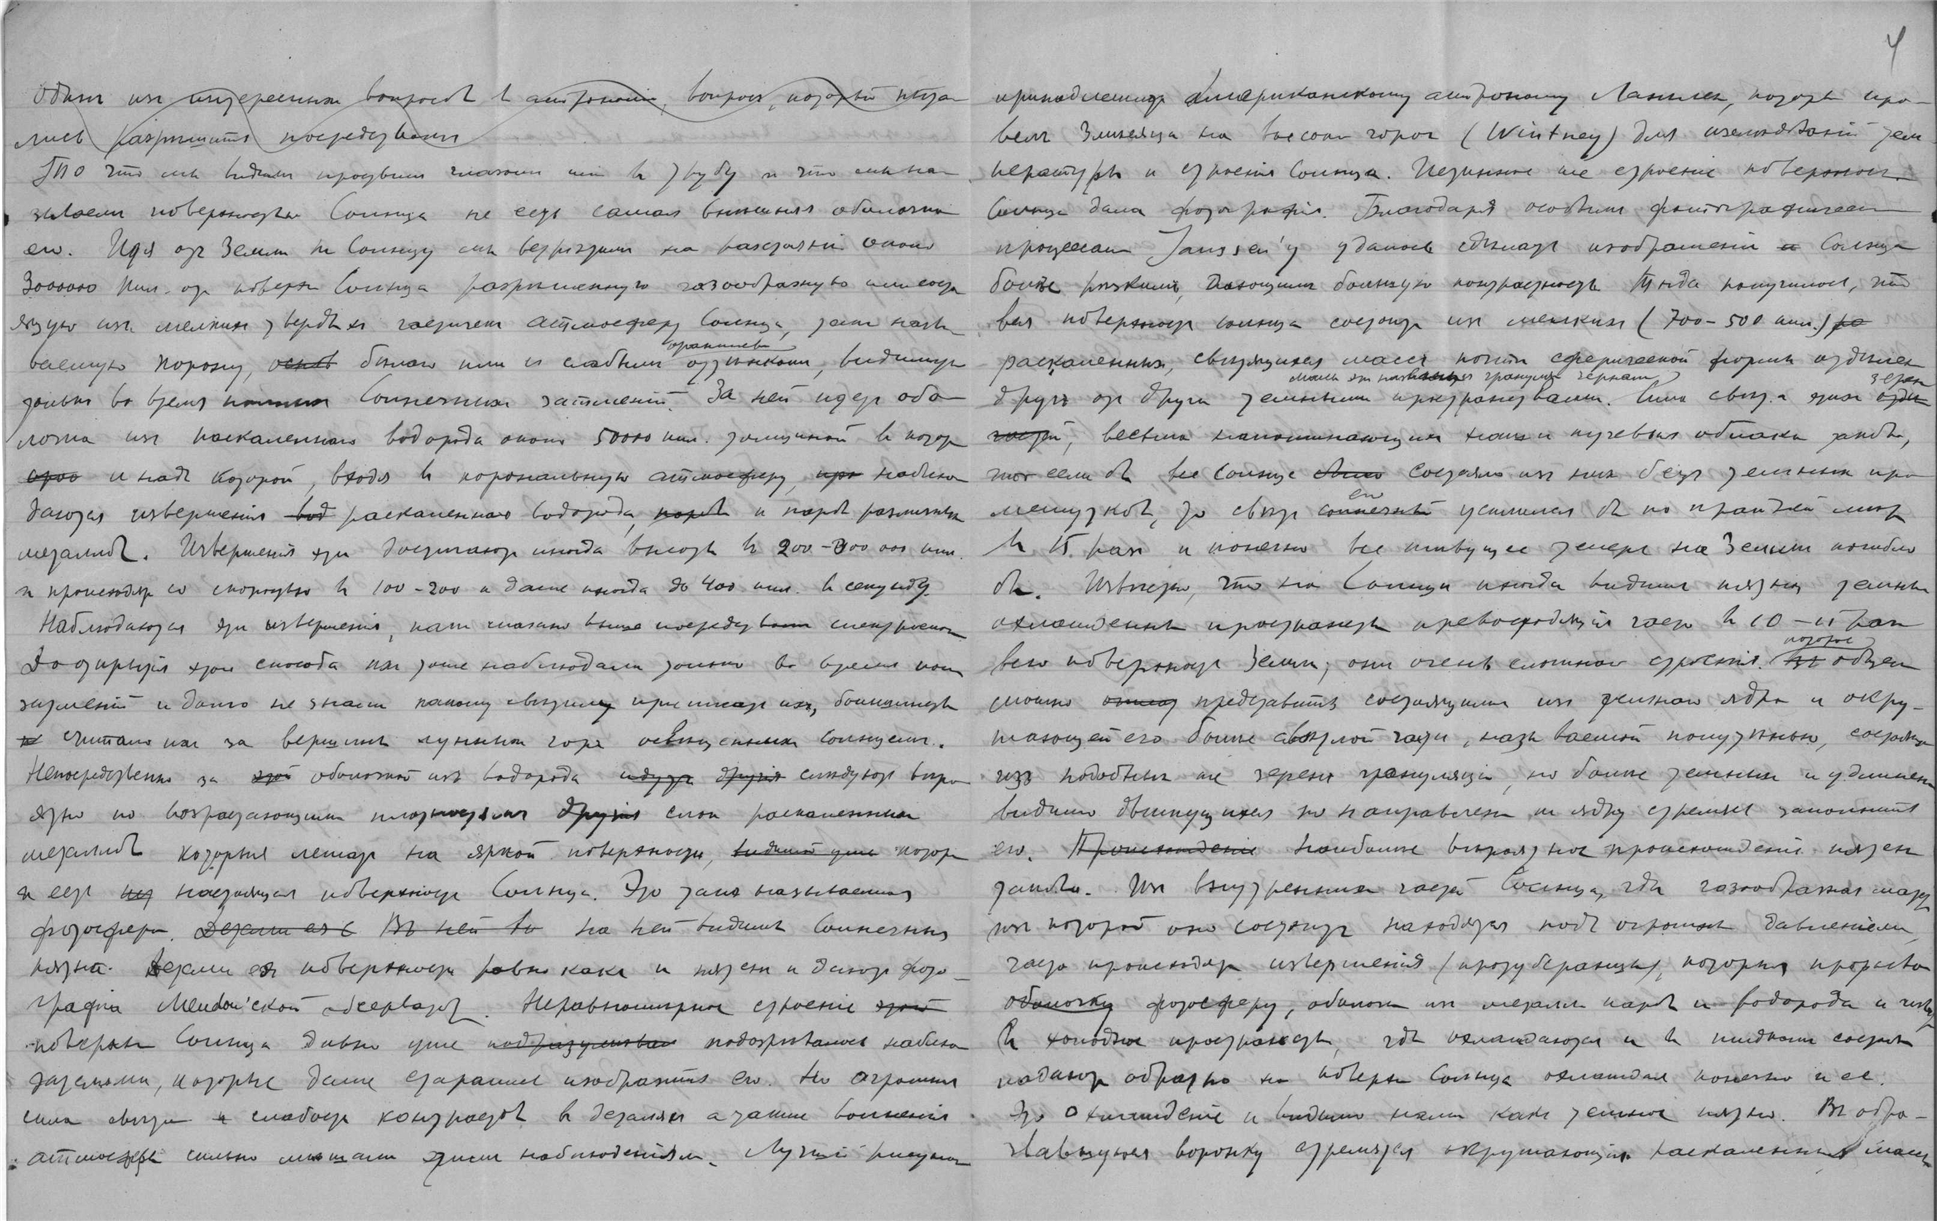 4
Одинъ изъ интересныхъ вопросовъ въ астрономіи, вопросъ, который пыта-
лись разрѣшить посредствомъ
То что мы видимъ простымъ глазомъ или въ трубу и что мы на-
зываемъ поверхностью Солнца не есть самая внѣшняя оболочка
его. Идя отъ Земли къ Солнцу мы встрѣтимъ на разстояніи около
3000000 кил. отъ поверхн Солнца разрѣженную газообразную или состо
ящую изъ мелкихъ твердыхъ частичекъ атмосферу Солнца, такъ назы
ваемую корону, бѣлаго или съ слабымъ оранжев оттѣнкомъ, видимую
только во время Солнечныхъ затменій. За ней идетъ обо-
лочка изъ раскаленнаго водорода около 50000 кил. толщиной въ котор
и надъ которой, входя въ корональную атмосферу, наблю
даются изверженія раскаленнаго водорода, и паровъ различныхъ
металловъ. Изверженія эти достигаютъ иногда высоты въ 200-300 000 кил.
и происходятъ со скоростью въ 100-200 и даже иногда до 400 кил. въ секунду.
Наблюдаются эти изверженія, какъ сказано выше посредствомъ спектроскопа
До открытія этого способа ихъ тоже наблюдали только во время полн
затменій и долго не знали какому свѣтилу приписать ихъ, большинство
считало ихъ за вершины лунныхъ горъ освѣщенныхъ солнцемъ.
Непосредственно за оболочкой изъ водорода слѣдуютъ вѣро
ятно по возрастающимъ плотностямъ слои раскаленныхъ
металловъ которые лежатъ на яркой поверхности, котор
и есть настоящая поверхность Солнца. Это такъ называемая
фотосфера. на ней видимъ Солнечныя
пятна. Детали ея поверхности равно какъ и пятенъ и даютъ фото-
графіи Meudon'ской обсерватор. Неравномѣрное строеніе
поверхн Солнца давно уже подозрѣвалось наблю
дателями, которые даже старались изобразить его. Но огромная
сила свѣта и слабость контрастовъ въ деталяхъ а также волненія
атмосферы сильно мѣшали этимъ наблюденіямъ. Лучшій рисунокъ
принадлежитъ Американскому астроному Ланглею, который про-
велъ 3 мѣсяца на высокой горѣ (Wintney) для изслѣдованій тем-
пературы и строенія Солнца. Истинное же строеніе поверхност.
Солнца дала фотографія. Благодаря особымъ фотографическ
процессамъ Janssen'у удалось сдѣлать изображеніе Солнца
болѣе рѣзкимъ, дающимъ большую контрастность Тогда получилось, что
вся поверхность солнца состоитъ изъ мелкихъ (700-500 кил.)
раскаленныхъ, свѣтящихся массъ почти сферической формы отдѣлен
другъ отъ друга темными пространствами. Сила свѣта этихъ зеренъ
весьма напоминающихъ наши кучевыя облака такова,
что если бы все солнце состояло изъ нихъ безъ темныхъ про
межутковъ, то свѣтъ его усилился бы по крайней мѣрѣ
въ 15 разъ и конечно все живущее теперь на Землѣ погибло
бы. Извѣстно, что на Солнцѣ иногда видимъ пятна темныя
охлажденныя пространства превосходящія часто въ 10-15 разъ
всю поверхность Земли; они очень сложнаго строенія, которое въ общемъ
можно представить состоящимъ изъ темнаго ядра и окру-
жающей его болѣе свѣтлой части, называемой полутѣнью, состоящ
изъ подобныхъ же зеренъ грануляціи, но болѣе темныхъ и удлиненн
видимо движущихся по направленію къ ядру стремясь заполнить
его. Наиболѣе вѣроятное происхожденіе пятенъ
таково. Изъ внутреннихъ частей Солнца, гдѣ газообразная матер
изъ которой оно состоитъ находятся подъ огромнымъ давленіемъ,
часто происходятъ изверженія (протуберанцы), которыя прорываю
фотосферу, оболочки изъ металл паровъ и водорода и
въ холодное пространство, гдѣ охлаждаются и въ жидкомъ состоян
падаютъ обратно на поверхн Солнца охлаждая конечно и ее.
Это охлажденіе и видимо нами какъ темное пятно. Въ обра-
зовавшуюся воронку стремятся окружающія раскаленныя массы